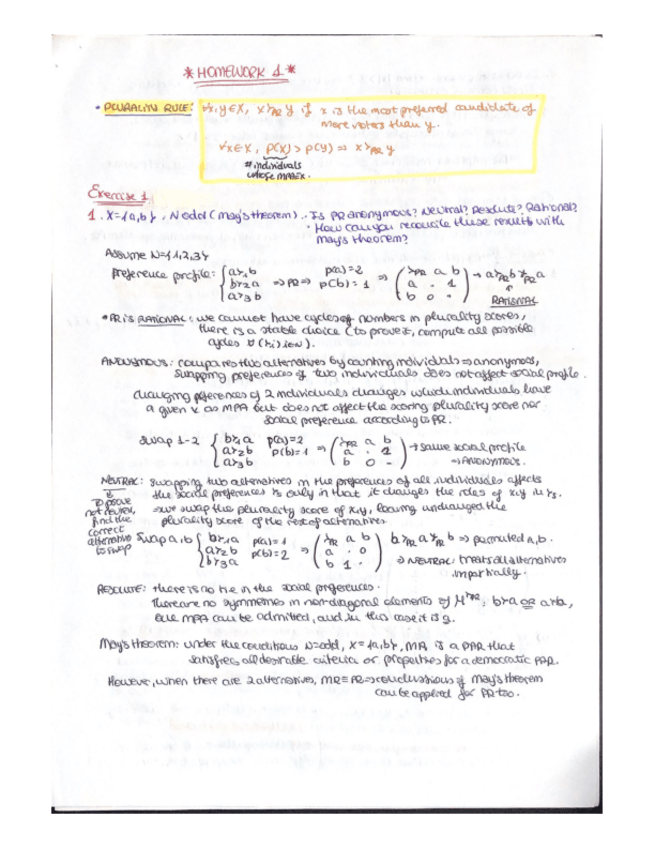 * HOMEWORK 1 *
• PLURALITY RULE: ∀x,y ∈ X, x ≻PR y if x is the most preferred candidate of
more voters than y.
∀x ∈ X, p(x) > p(y) ⇒ x ≻PR y
# individuals
whose MPA is x.
Exercise 1
1. X={a,b}, N odd (May's theorem). Is PR anonymous? Neutral? Resolute? Rational?
• How can you reconcile these results with
May's theorem?
Assume N={1,2,3}
preference profile: { a≻1b p(a)=2 ( ≻PR a b
b≻2a ⇒ PR ⇒ p(b)=1 ⇒ a . 1 → a≻PR b ⊁PR a
a≻3b b 0 . ) RATIONAL
• PR is RATIONAL: we cannot have cycles of numbers in plurality scores,
there is a stable choice (to prove it, compute all possible
cycles
ANONYMOUS: compares two alternatives by counting individuals ⇒ anonymous,
swapping preferences of two individuals does not affect social profile.
changing preferences of 2 individuals changes which individuals have
a given x as MPA but does not affect the scoring plurality score nor
social preference according to PR.
swap 1-2 { b≻1a p(a)=2 ( ≻PR a b
a≻2b p(b)=1 ⇒ a . 1 → same social profile
a≻3b b 0 - ) → ANONYMOUS.
NEUTRAL: swapping two alternatives in the preferences of all individuals affects
the social preferences only in that it changes the roles of x,y
to prove
not neutral,
find the
correct
alternative
to swap
swap the plurality score of x,y, leaving unchanged the
plurality score of the rest of alternatives
swap a,b { b≻1a p(a)=1 ( ≻PR a b b≻PR a ⊁PR b ⇒ permuted a,b.
a≻2b p(b)=2 ⇒ a . 0
b≻3a b 1 . ) ⇒ NEUTRAL: treats all alternatives
impartially.
RESOLUTE: there is no tie in the social preferences.
there are no symmetries in non-diagonal elements of M≻PR: b≻a OR a≻b,
one MPA can be admitted, and in this case it is
May's theorem: under the conditions N=odd, X={a,b}, MR is a PAR that
satisfies all desirable criteria or properties for a democratic PAR.
However, when there are 2 alternatives, MR≡PR ⇒ conclusions of May's theorem
can be applied for PR too.